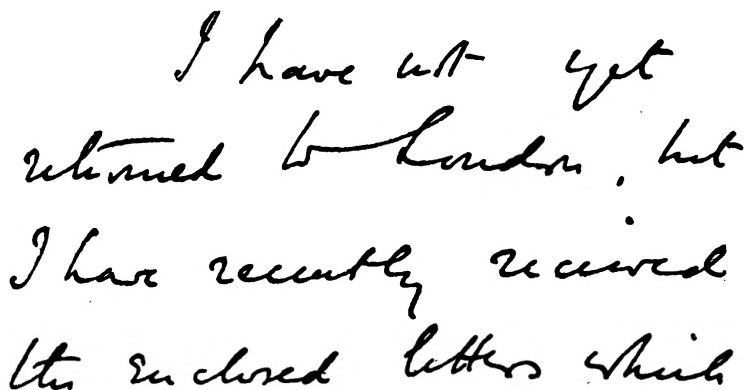 I have not yet
returned to London, but
I have recently received
the enclosed letters which